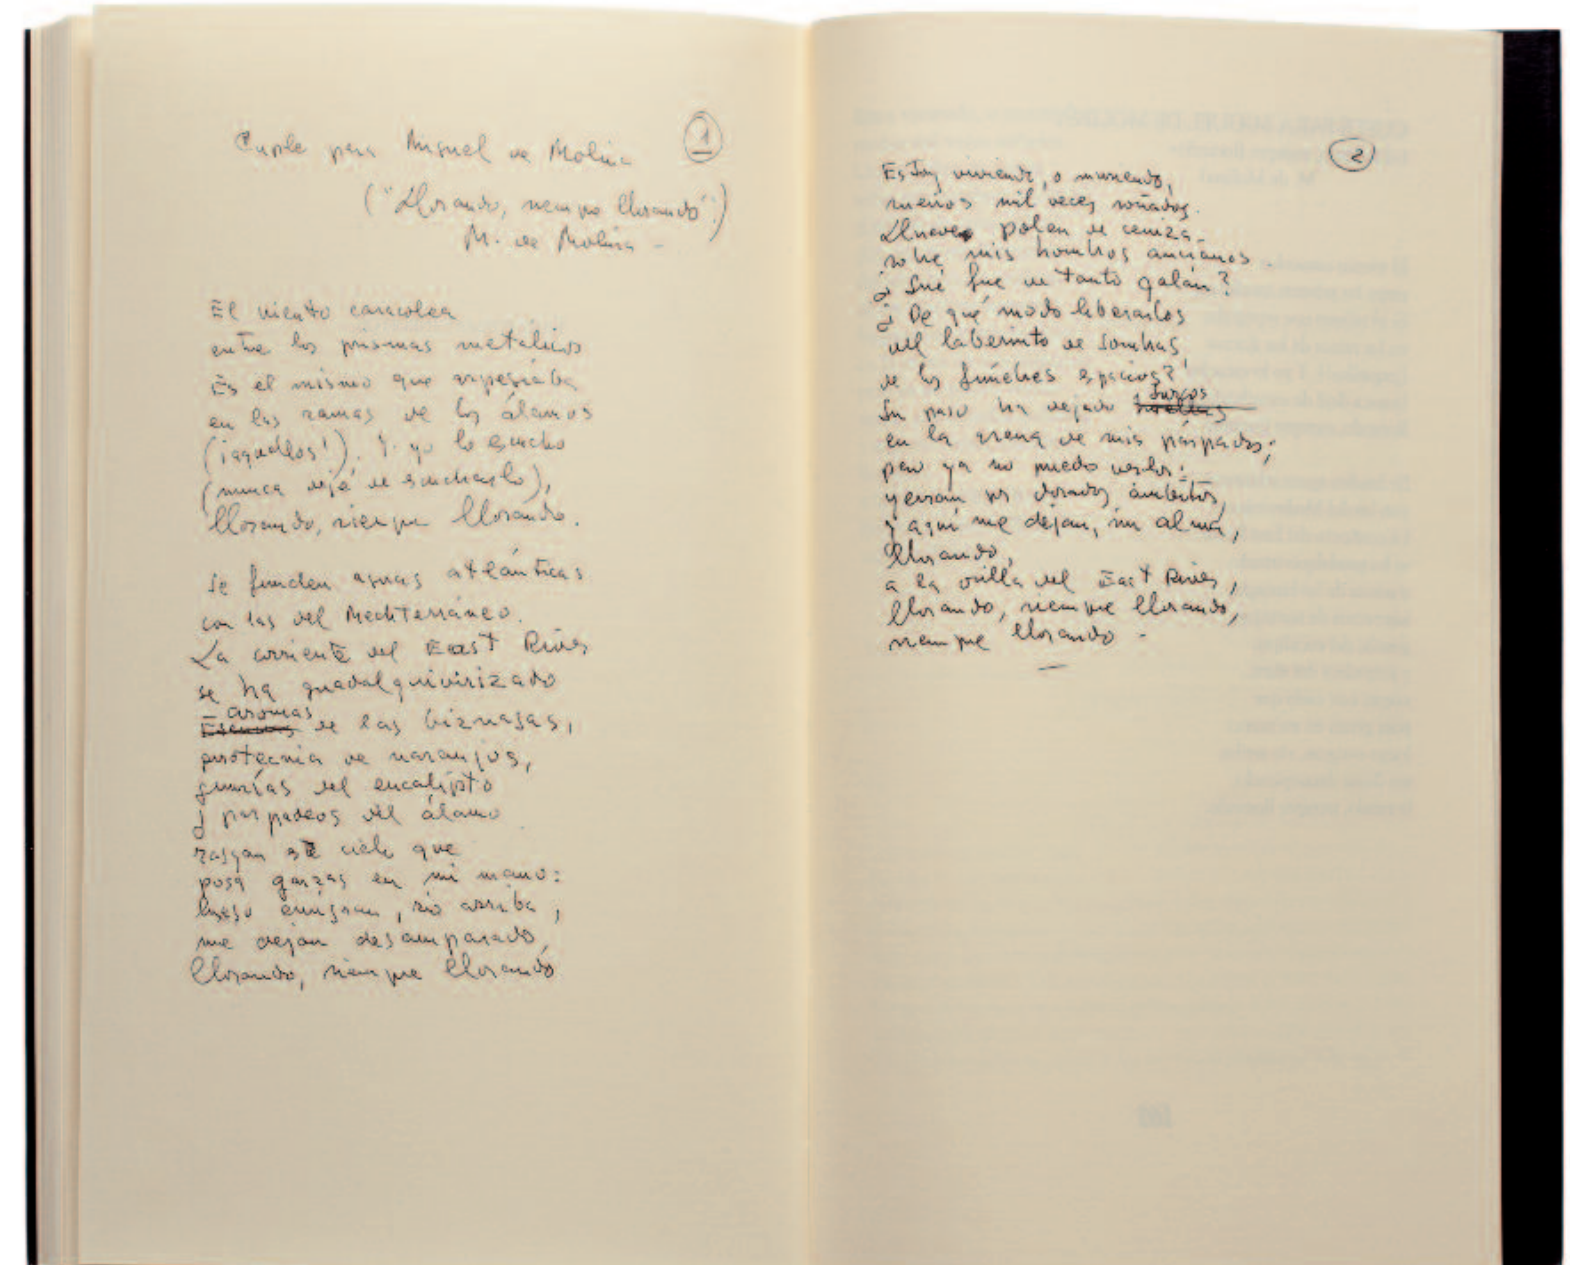 Cuple para Miguel de Molina
1
("Llorando, siempre llorando")
M. de Molina -
El viento caracolea
entre los prismas metálicos
Es el mismo que arpegiaba
en las ramas de los álamos
(¡aquéllos!). Y yo lo escucho
(nunca dejé de escucharlo),
llorando, siempre llorando.
Se funden aguas atlánticas
con las del Mediterráneo.
La corriente del East River
se ha guadalquivirizado
aromas
de las biznagas,
pirotecnia de naranjos,
gumías del eucalipto
y parpadeos del álamo
rasgan este cielo que
posa garzas en mi mano:
luego emigran, río arriba,
me dejan desamparado,
llorando, siempre llorando
2
Estoy viviendo, o muriendo,
sueños mil veces soñados.
Llueve polen de ceniza
sobre mis hombros ancianos.
¿Qué fue de tanto galán?
¿De qué modo liberarlos
del laberinto de sombras,
de los fúnebres espacios?
surcos
Su paso ha dejado huellas
en la arena de mis párpados;
pero ya no puedo verlos:
y aquí me dejan, sin alma,
llorando,
a la orilla del East River,
llorando, siempre llorando,
siempre llorando -